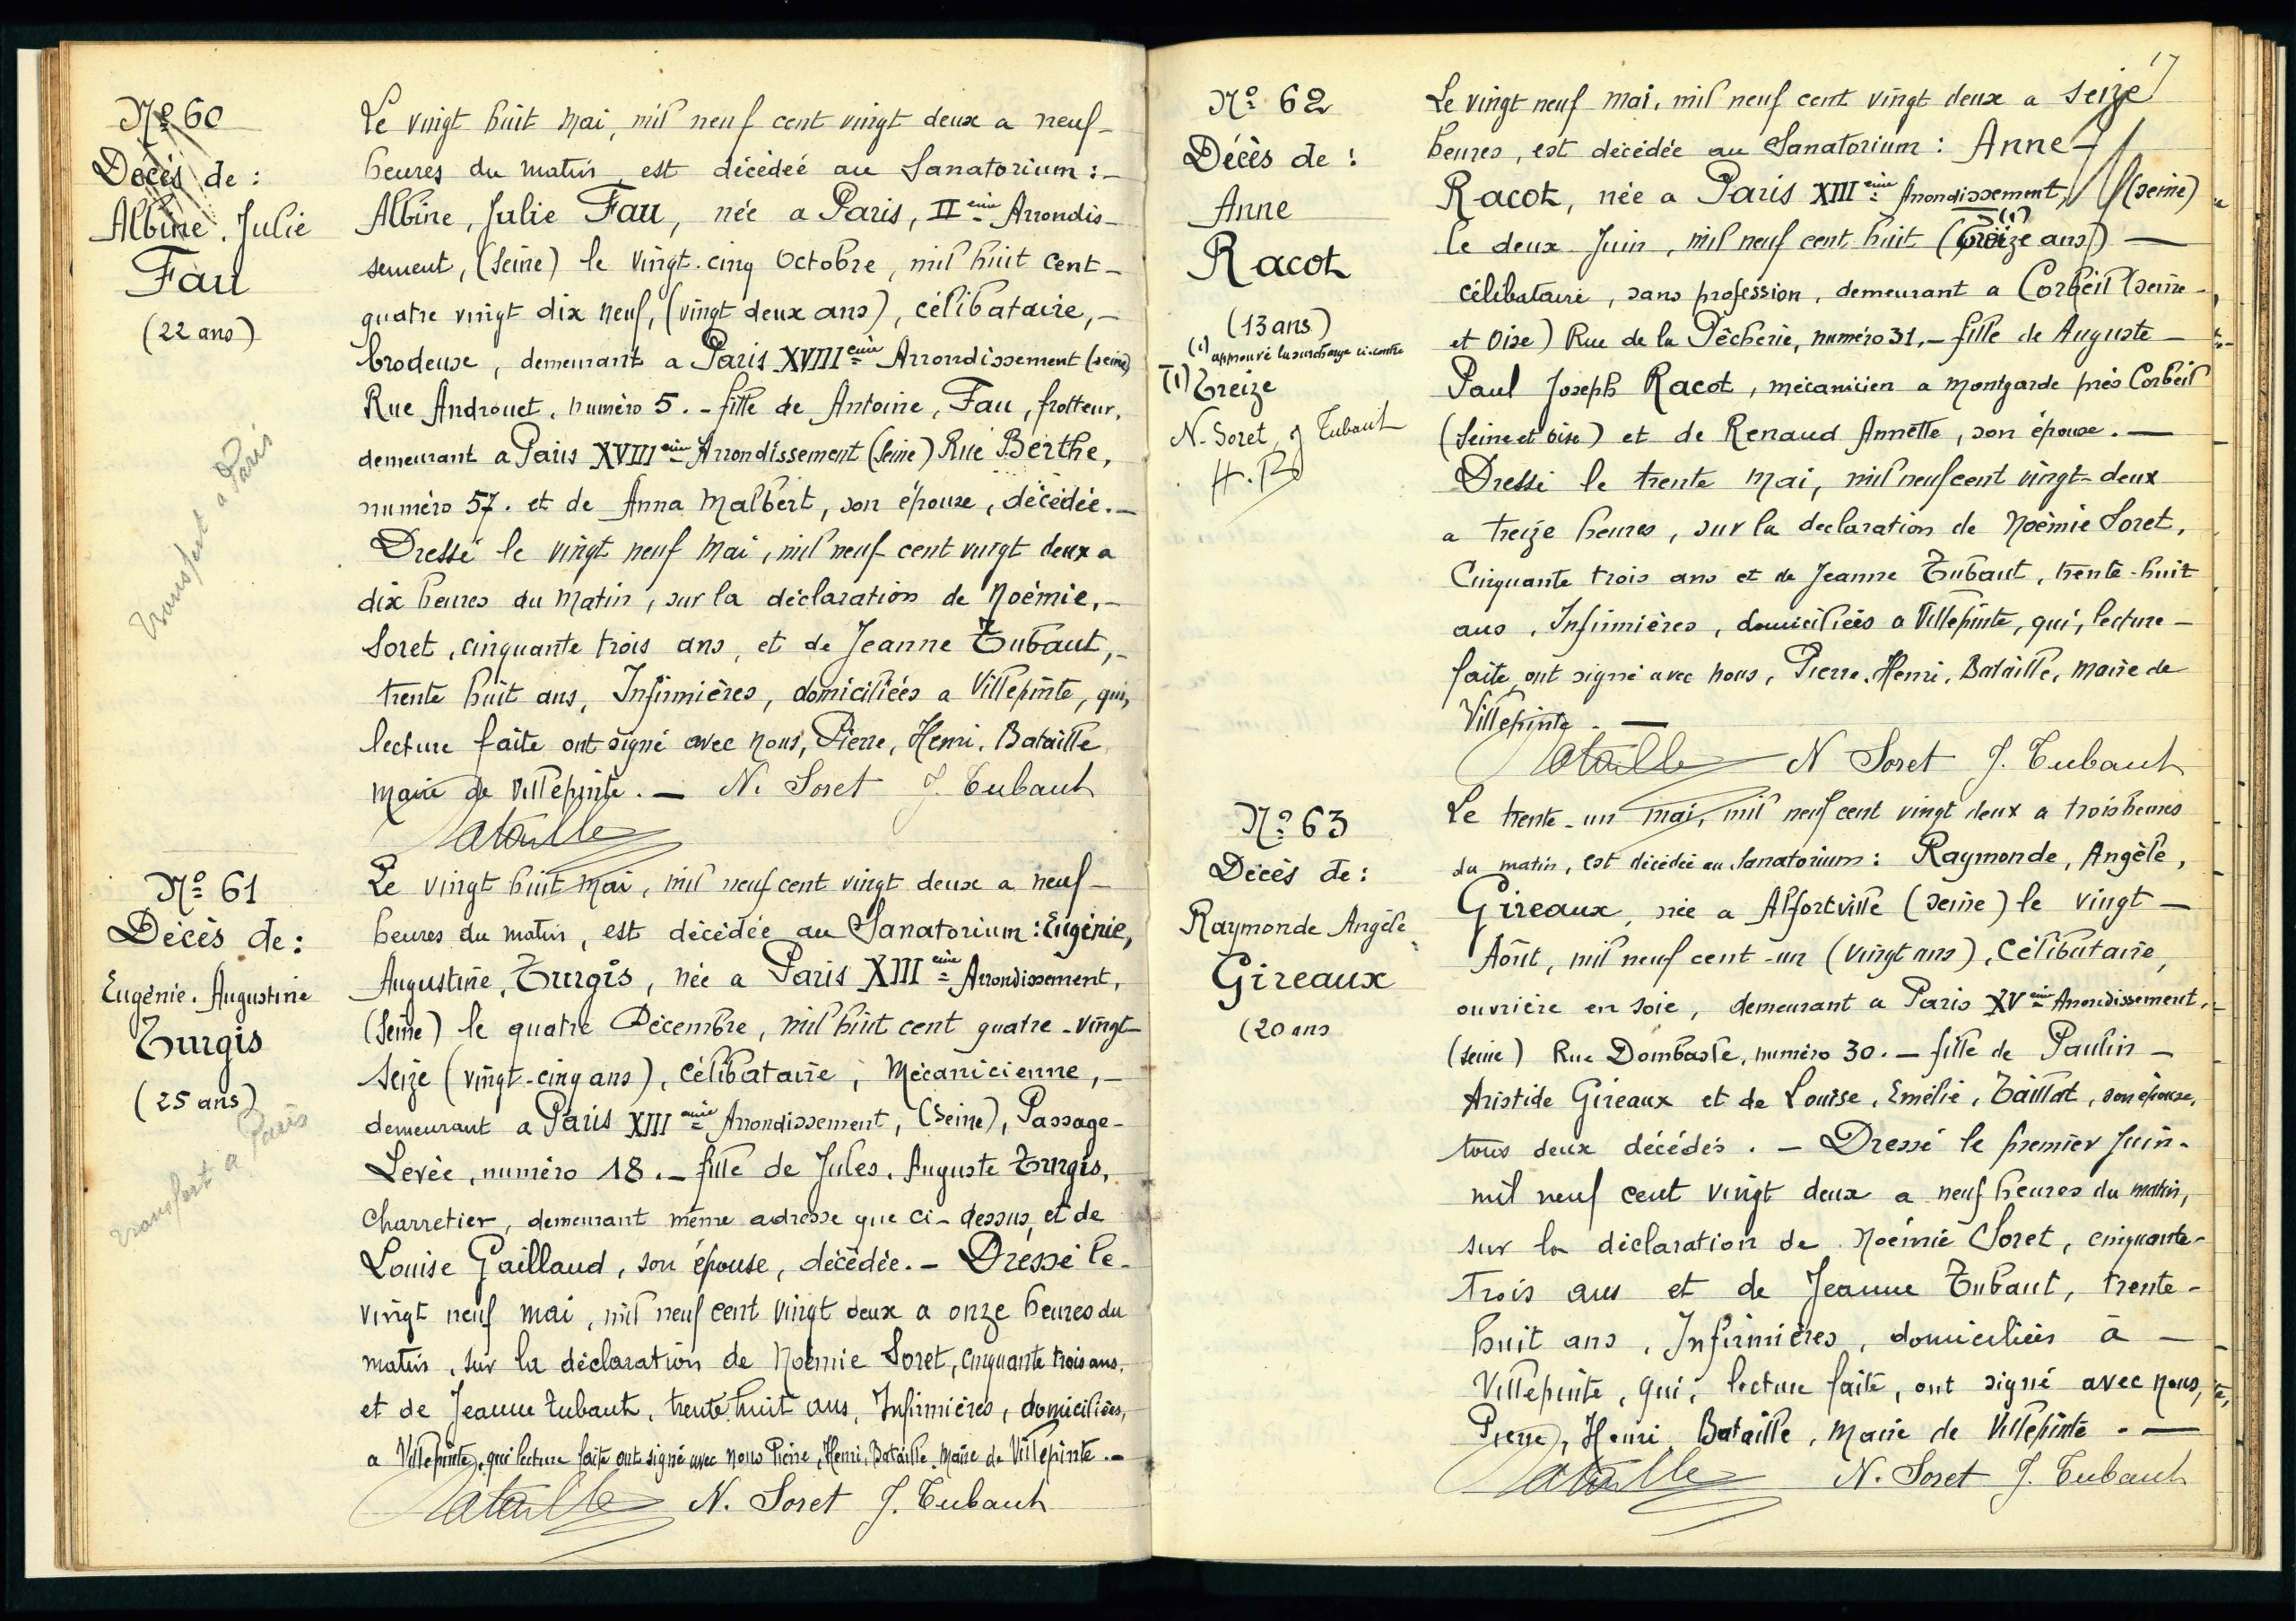 Nº 60
Décès de :
Albine, Julie
Fau
(22 ans)
Transfert a Paris
Le vingt huit Mai, mil neuf cent vingt deux a neuf -
heures du matin, est décédée au Sanatorium : -
Albine, Julie Fau, née a Paris, IIeme Arrondis-
sement, (Seine) le vingt-cinq Octobre, mil huit cent -
quatre vingt dix neuf, (vingt deux ans), célibataire, -
brodeuse, demeurant a Paris XVIIIeme Arrondissement (Seine)
Rue Androuet, numéro 5. - fille de Antoine, Fau, frotteur,
demeurant a Paris XVIIIeme Arrondissement (Seine) Rue Berthe,
numéro 57. et de Anna Malbert, son épouse, décédée. -
Dressé le vingt neuf Mai, mil neuf cent vingt deux a
dix heures du Matin, sur la déclaration de Noémie, -
Soret, cinquante trois ans, et de Jeanne Tubaut, -
trente huit ans, Infirmières, domiciliées a Villepinte, qui,
lecture faite ont signé avec Nous, Pierre, Henri, Bataille
Maire de Villepinte. - N. Soret J. Tubaut
Bataille
Nº 61
Décès de :
Eugénie, Augustine
Turgis
(25 ans)
Transfert a Paris
Le vingt huit Mai, mil neuf cent vingt deux a neuf -
heures du matin, est décédée au Sanatorium : Eugénie,
Augustine, Turgis, née a Paris XIIIeme Arrondissement,
(Seine) le quatre Décembre, mil huit cent quatre-vingt-
seize (vingt-cinq ans), célibataire, Mécanicienne, -
demeurant a Paris XIIIeme Arrondissement, (Seine), Passage -
Levée, numéro 18. - fille de Jules, Auguste Turgis,
Charretier, demeurant même adresse que ci-dessus, et de
Louise Gaillaud, son épouse, décédée. - Dressé le -
vingt neuf mai, mil neuf cent vingt deux a onze heures du
matin, sur la déclaration de Noémie Soret, cinquante trois ans,
et de Jeanne Tubaut, trente huit ans, Infirmières, domiciliées,
a Villepinte, qui lecture faite ont signé avec Nous Pierre, Henri, Bataille, Maire de Villepinte. -
Bataille N. Soret J. Tubaut
17
Nº 62
Décès de :
Anne
Racot
(13 ans)
(1) approuvé la surcharge ci-contre
(1) Treize
N. Soret J Tubaut
H. B
Le vingt neuf Mai, mil neuf cent vingt deux a seize
heures, est décédée au Sanatorium : Anne -
Racot, née a Paris XIIIeme Arrondissement, (Seine)
(1)
le deux Juin, mil neuf cent huit (treize ans) -
célibataire, sans profession, demeurant a Corbeil (Seine -
et Oise) Rue de la Pêcherie, numéro 31, - fille de Auguste -
Paul Joseph Racot, mécanicien a Montgarde près Corbeil
(Seine et Oise) et de Renaud Annette, son épouse. -
Dressé le trente Mai, mil neuf cent vingt-deux
a treize heures, sur la declaration de Noémie Soret,
Cinquante trois ans et de Jeanne Tubaut, trente-huit
ans, Infirmières, domiciliées a Villepinte, qui, lecture -
faite, ont signé avec nous, Pierre, Henri, Bataille, Maire de
Villepinte. -
Bataille N Soret J. Tubaut
Nº 63
Décès de :
Raymonde Angèle
Gireaux
(20 ans
Le trente-un mai, mil neuf cent vingt deux a trois heures
du matin, est décédée au Sanatorium : Raymonde, Angèle,
Gireaux, née a Alfortville (Seine) le vingt -
Août, mil neuf cent-un (vingt ans), Célibataire,
ouvrière en soie, demeurant a Paris XVeme Arrondissement,
(Seine) Rue Dombasle, numéro 30. - fille de Paulin -
Aristide Gireaux et de Louise, Emélie, Taillat, son épouse,
tous deux décédés. - Dressé le premier Juin -
mil neuf cent vingt deux a neuf heures du matin,
sur la déclaration de Noémie Soret, cinquante -
trois ans et de Jeanne Tubaut, trente -
huit ans, Infirmières, domiciliées à -
Villepinte, qui, lecture faite, ont signé avec nous,
Pierre, Henri, Bataille, Maire de Villepinte. -
Bataille N. Soret J. Tubaut